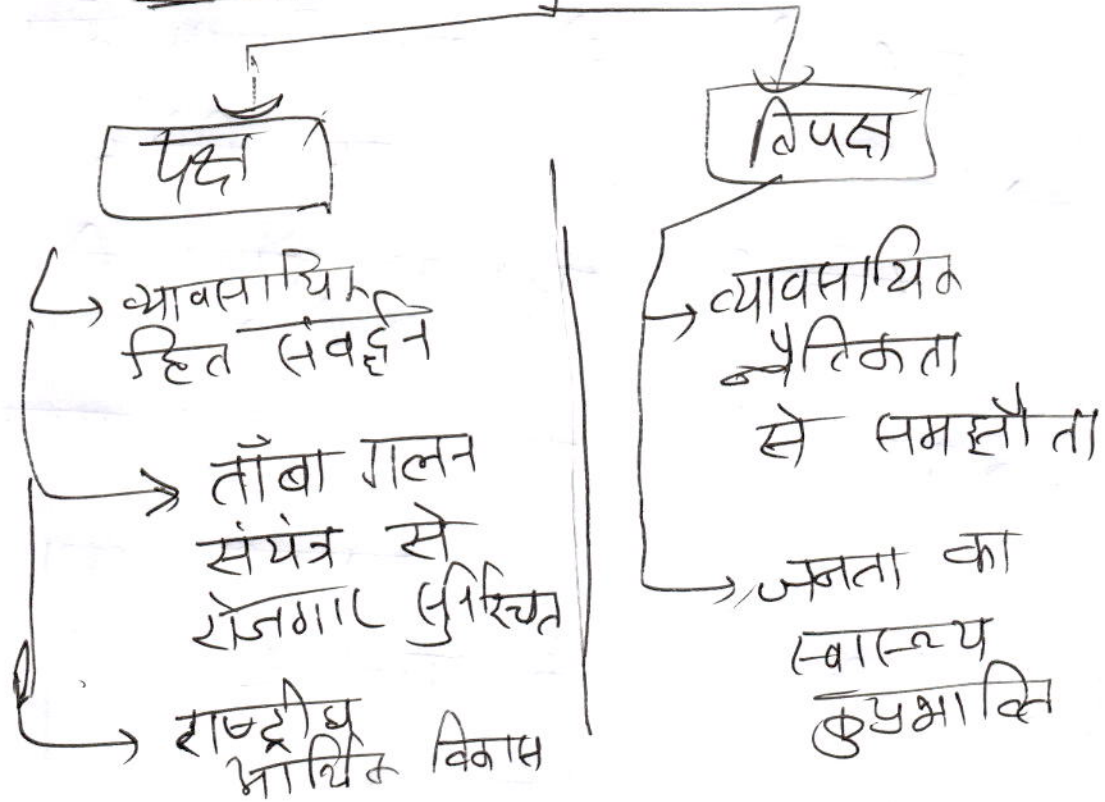 पक्ष
व्यावसायिक
हित संवर्द्धन
ताँबा गलन
संयंत्र से
रोजगार सुनिश्चित
राष्ट्रीय
आर्थिक विकास
विपक्ष
व्यावसायिक
नैतिकता
से समझौता
जनता का
स्वास्थ्य
कुप्रभावित